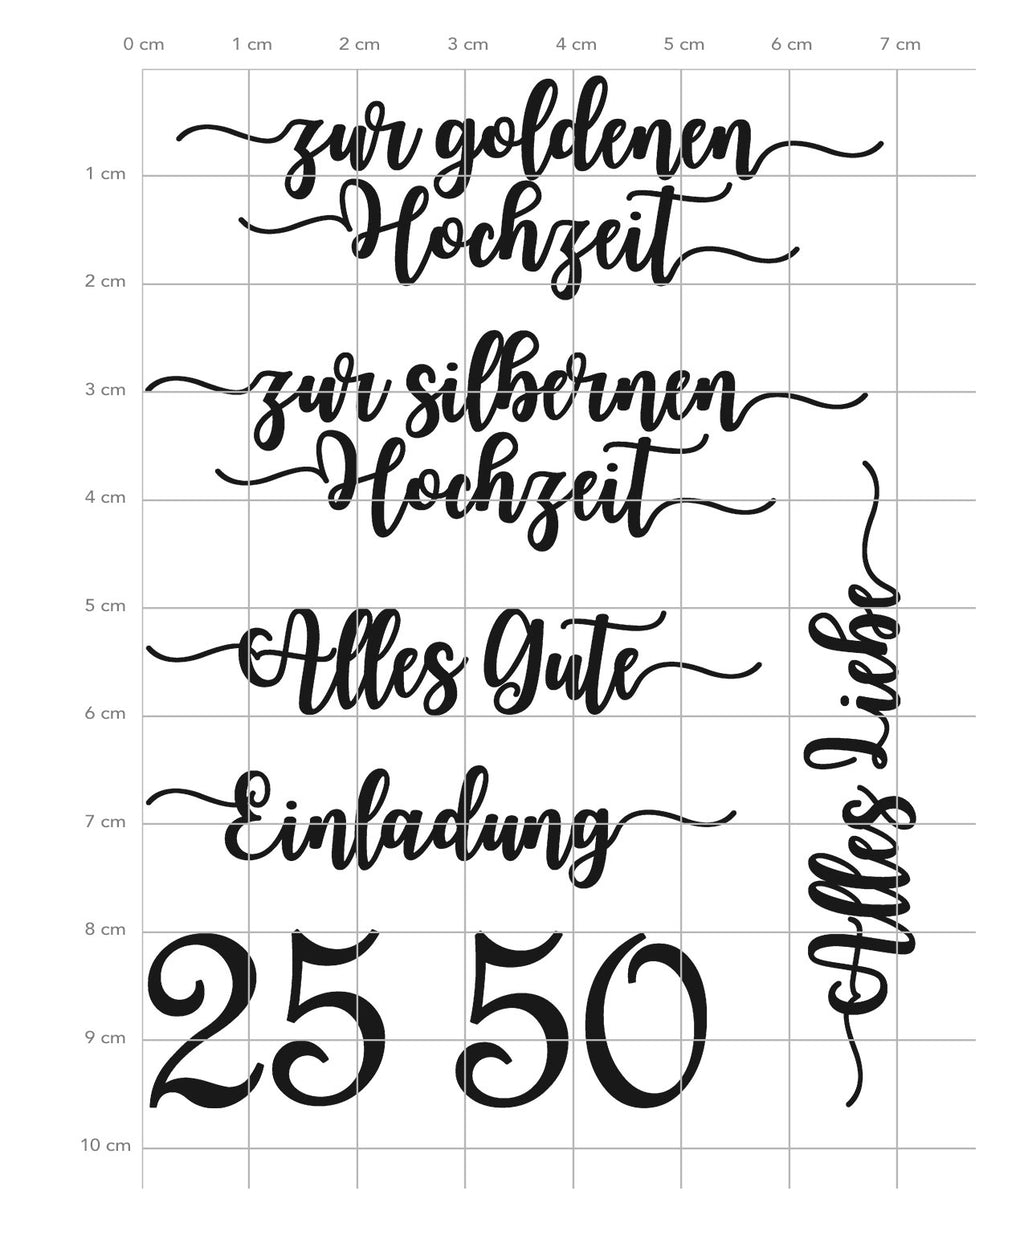 0 cm 1 cm 2 cm 3 cm 4 cm 5 cm 6 cm 7 cm
zur goldenen
1 cm
Hochzeit
2 cm
zur silbernen
3 cm
Hochzeit
4 cm
5 cm
Alles Gute
6 cm
Einladung
7 cm
8 cm
25 50
9 cm
10 cm
Alles Liebe